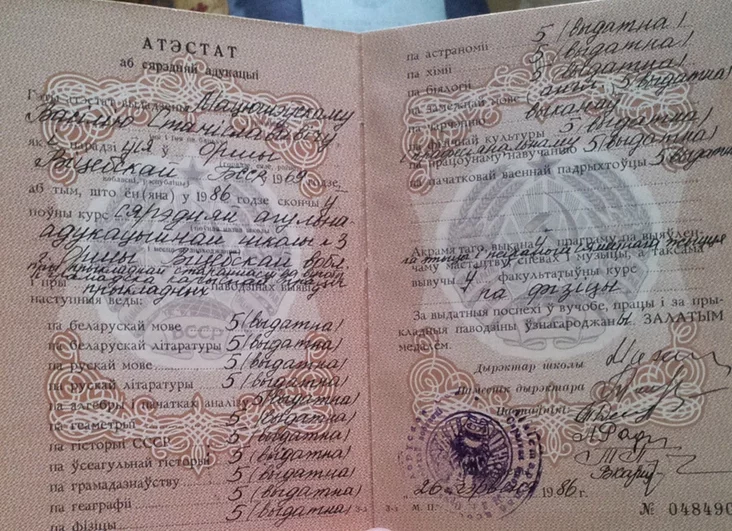 АТЭСТАТ
аб сярэдняй адукацыі
Гэты атэстат выдадзены Мацюшэўскаму
Васілію Станіслававічу
які нарадзіўся ў г. Оршы
Віцебскай БССР 1969 годзе
аб тым, што ён(яна) у 1986 годзе скончыў
поўны курс сярэдняй агульна-
адукацыйнай школы № 3
г. Оршы Віцебскай вобл.
і пры прыкладных паводзінах выявіў
наступныя веды:
па беларускай мове 5 (выдатна)
па беларускай літаратуры 5 (выдатна)
па рускай мове 5 (выдатна)
па рускай літаратуры 5 (выдатна)
па алгебры і пачатках аналізу 5 (выдатна)
па геаметрыі 5 (выдатна)
па гісторыі СССР 5 (выдатна)
па ўсеагульнай гісторыі 5 (выдатна)
па грамадазнаўству 5 (выдатна)
па геаграфіі 5 (выдатна)
па фізіцы 5 (выдатна)
па астраноміі 5 (выдатна)
па хіміі 5 (выдатна)
па біялогіі 5 (выдатна)
па замежнай мове (англ.) 5 (выдатна)
па чарчэнню выканаў
па фізічнай культуры 5 (выдатна)
па працоўнаму навучанню 5 (выдатна)
па пачатковай ваеннай падрыхтоўцы 5 (выдатна)
Акрамя таго, выканаў праграму па выяўлен-
чаму мастацтву, спевах і музыцы, а таксама
вывучыў факультатыўны курс
па фізіцы
За выдатныя поспехі ў вучобе, працы і за пры-
кладныя паводзіны ўзнагароджаны ЗАЛАТЫМ
медалём.
Дырэктар школы
Намеснік дырэктара
Настаўнікі:
"26" 1986 г.
М. П.
№ 048490